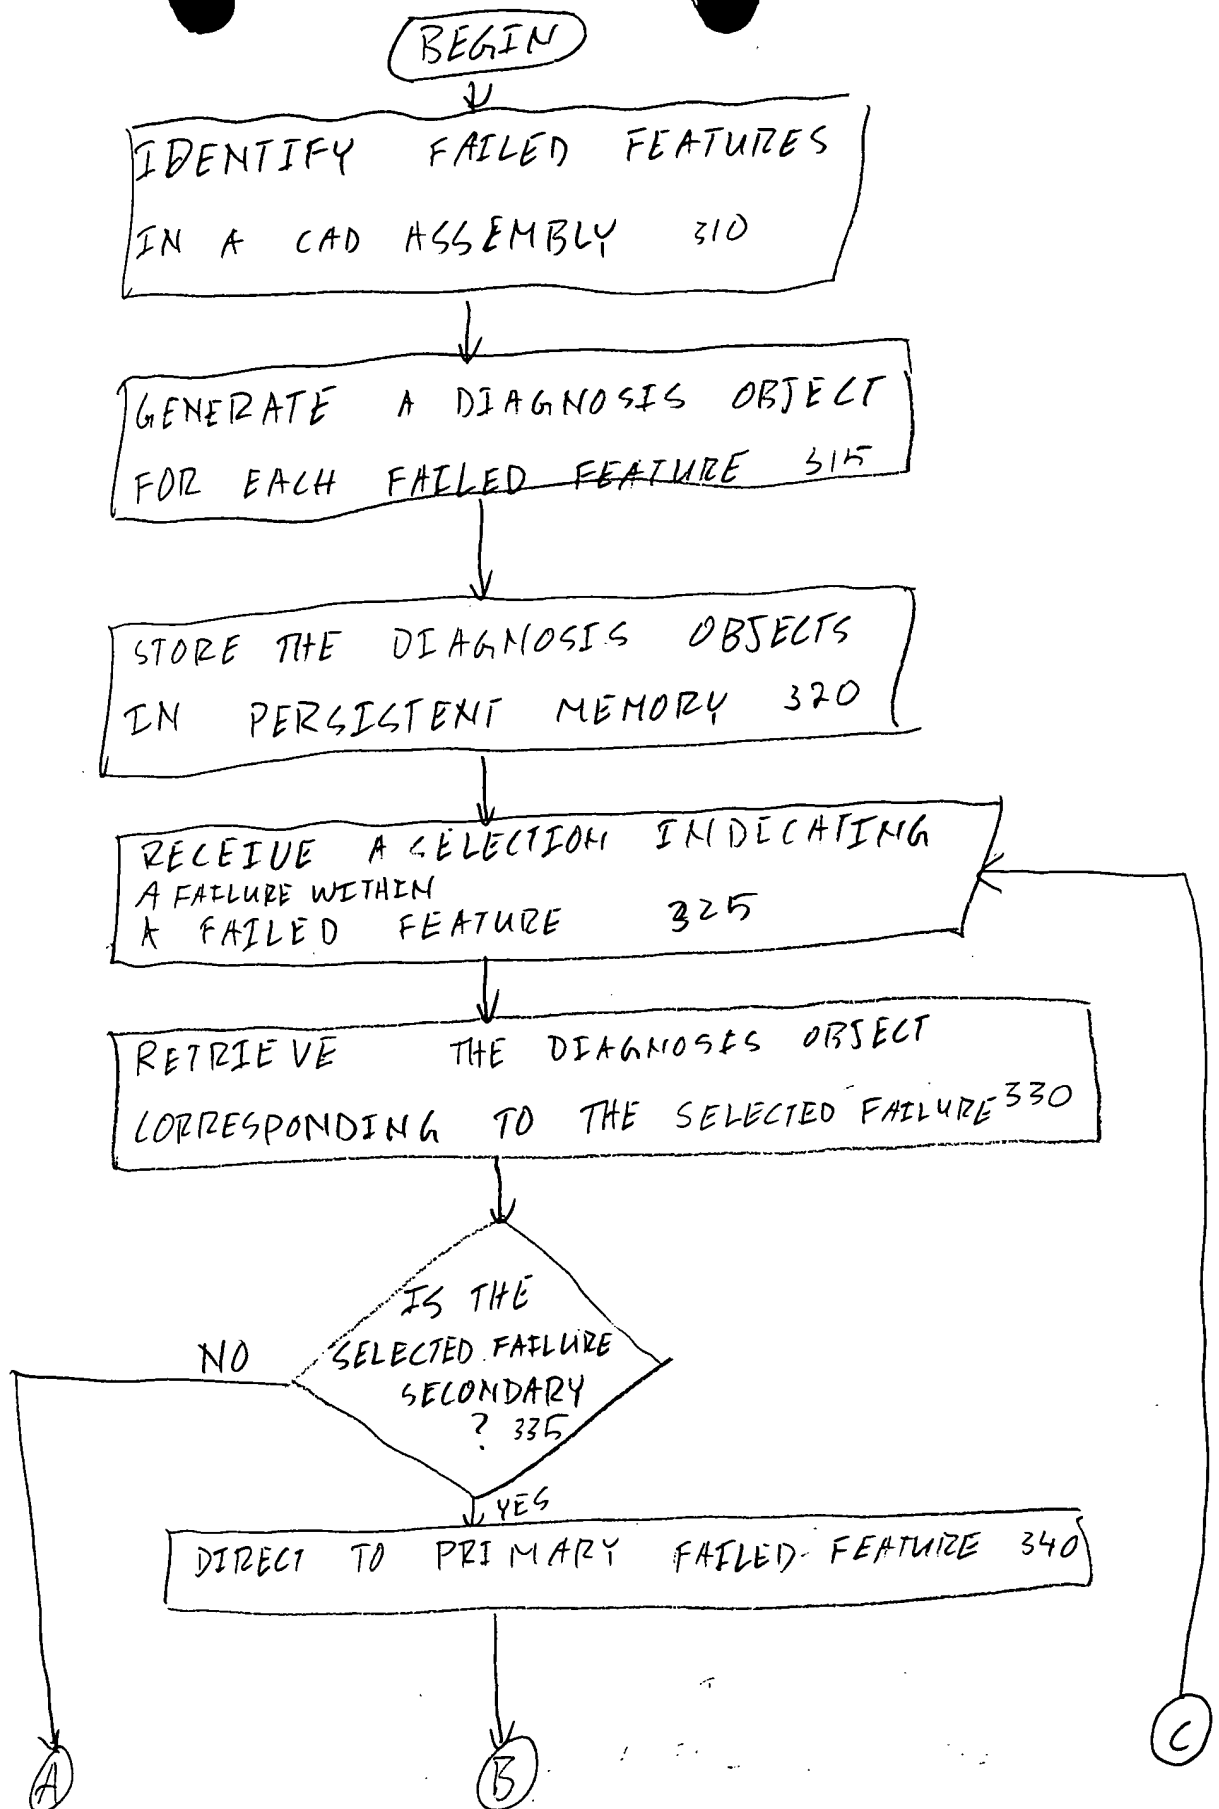 BEGIN
IDENTIFY FAILED FEATURES
IN A CAD ASSEMBLY 310
GENERATE A DIAGNOSIS OBJECT
FOR EACH FAILED FEATURE 315
STORE THE DIAGNOSIS OBJECTS
IN PERSISTENT MEMORY 320
RECEIVE A SELECTION INDICATING
A FAILURE WITHIN
A FAILED FEATURE 325
RETRIEVE THE DIAGNOSIS OBJECT
CORRESPONDING TO THE SELECTED FAILURE 330
IS THE
NO SELECTED FAILURE
SECONDARY
? 335
YES
DIRECT TO PRIMARY FAILED FEATURE 340
A
B
C